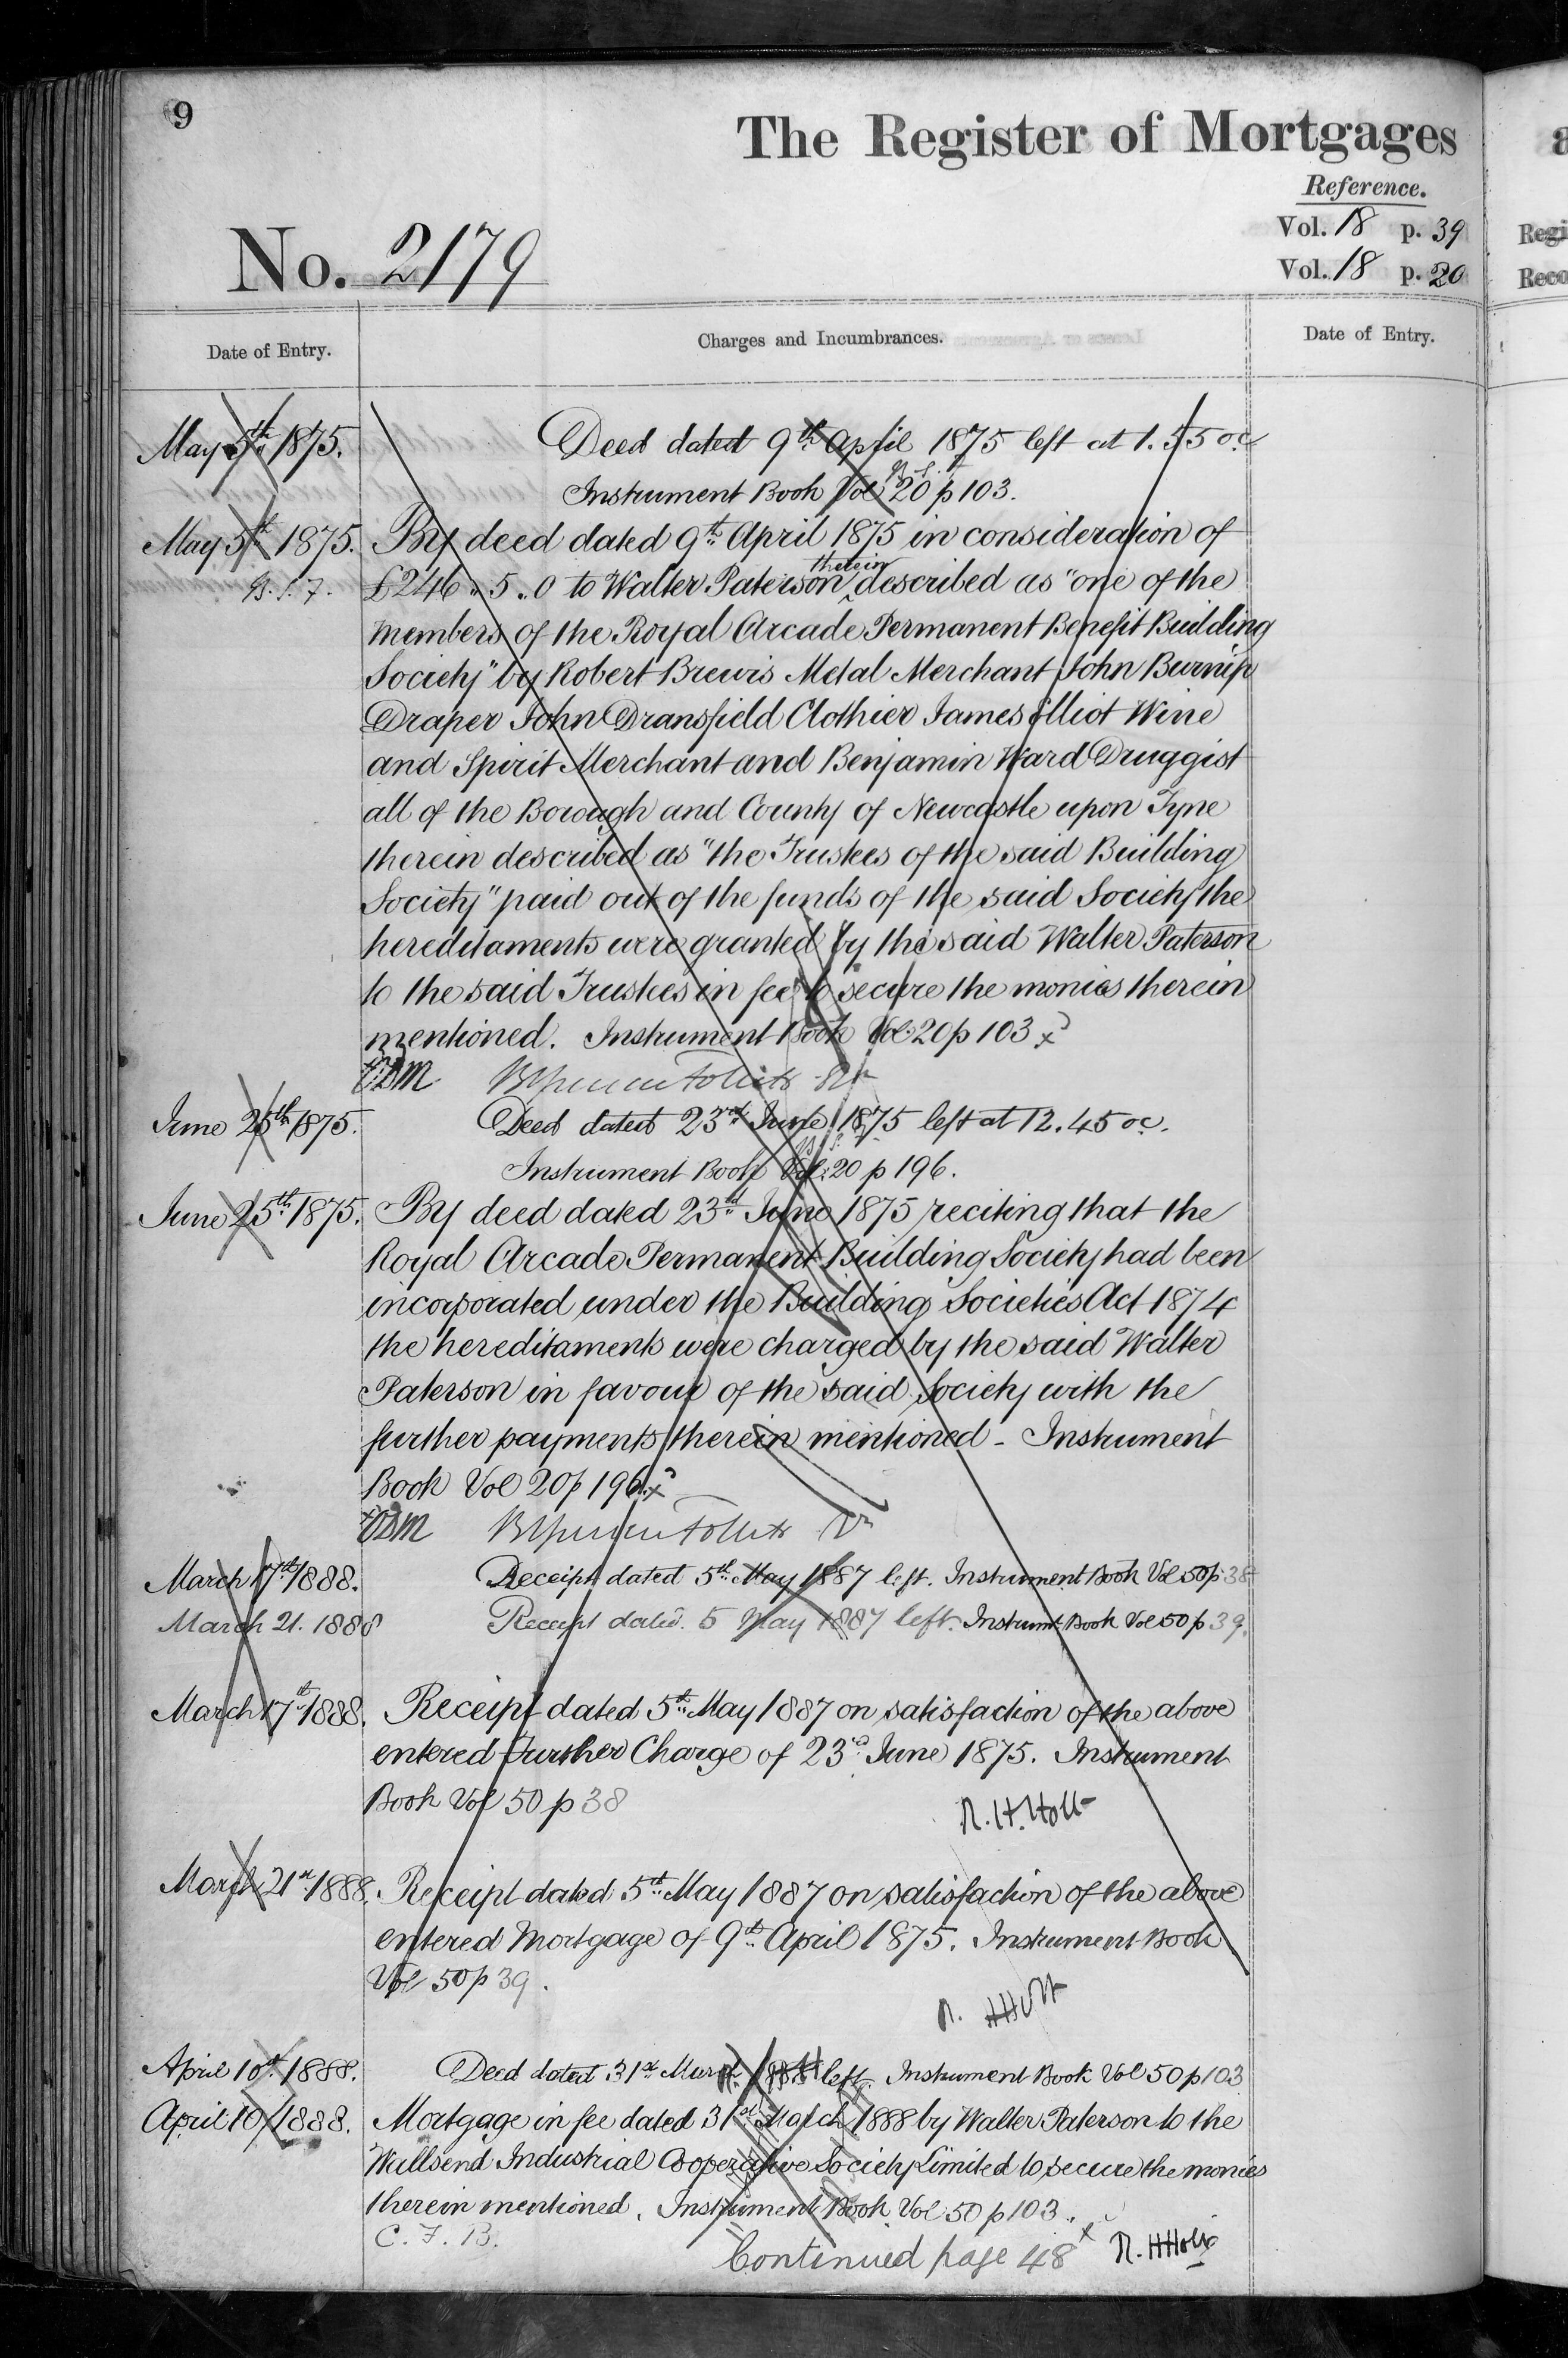 9
The Register of Mortgages
Reference.
Vol. 18 p. 39
Vol. 18 p. 20
No. 2179
Regi
Reco
Date of Entry.
Charges and Incumbrances.
Date of Entry.
May 5th 1875. Deed dated 9th April 1875 left at 1.55 oc
Instrument Book Vol 20 p 103.
May 5th 1875. By deed dated 9th April 1875 in consideration of
£246 . 5 . 0 to Walter Paterson therein described as "one of the
members of the Royal Arcade Permanent Benefit Building
Society" by Robert Brewis Metal Merchant John Burnip
Draper John Dransfield Clothier James Elliot Wine
and Spirit Merchant and Benjamin Ward Druggist
all of the Borough and County of Newcastle upon Tyne
therein described as "the Trustees of the said Building
Society" paid out of the funds of the said Society the
hereditaments were granted by the said Walter Paterson
to the said Trustees in fee to secure the monies therein
mentioned. Instrument Book Vol 20 p 103 x
June 25th 1875. Deed dated 23rd June 1875 left at 12.45 oc.
Instrument Book Vol. 20 p 196.
June 25th 1875. By deed dated 23rd June 1875 reciting that the
Royal Arcade Permanent Building Society had been
incorporated under the Building Societies Act 1874
the hereditaments were charged by the said Walter
Paterson in favour of the said Society with the
further payments therein mentioned - Instrument
Book Vol 20 p 196. x
March 17th 1888. Receipt dated 5th May 1887 left. Instrument Book Vol 50 p 38
March 21. 1888 Receipt dated 5 May 1887 left. Instrumt Book Vol 50 p 39.
March 17th 1888. Receipt dated 5th May 1887 on satisfaction of the above
entered Further Charge of 23rd June 1875. Instrument
Book Vol 50 p 38
R. H. Holt
March 21st 1888. Receipt dated 5th May 1887 on satisfaction of the above
entered Mortgage of 9th April 1875. Instrument Book
Vol 50 p 39.
R. H Holt
April 10th 1888. Deed dated 31st March 1888 left. Instrument Book Vol 50 p 103
April 10 1888. Mortgage in fee dated 31st March 1888 by Walter Paterson to the
Wallsend Industrial Cooperative Society Limited to secure the monies
therein mentioned. Instrument Book Vol 50 p 103.
C. F. B.
Continued page 48 x R. H Holt